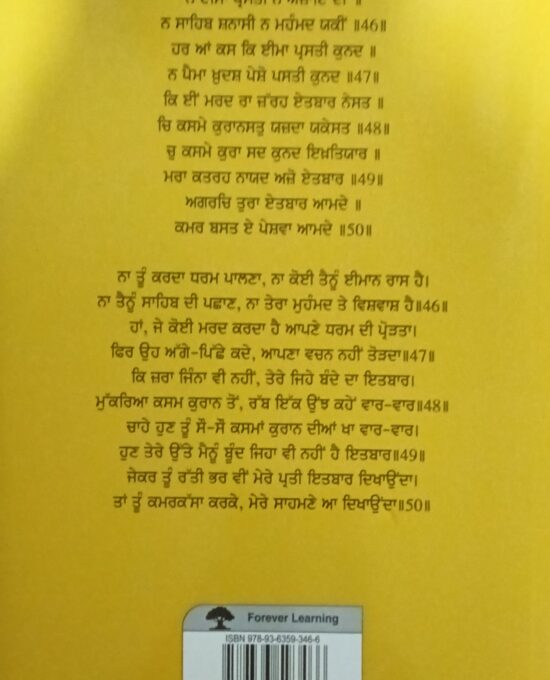 ਨ ਸਾਹਿਬ ਸ਼ਨਾਸੀ ਨ ਮਹੰਮਦ ਯਕੀਂ ॥46॥
ਹਰ ਆਂ ਕਸ ਕਿ ਈਮਾ ਪ੍ਰਸਤੀ ਕੁਨਦ ॥
ਨ ਪੈਮਾ ਖ਼ੁਦਸ਼ ਪੇਸ਼ੋ ਪਸਤੀ ਕੁਨਦ ॥47॥
ਕਿ ਈਂ ਮਰਦ ਰਾ ਜ਼ੱਰਹ ਏਤਬਾਰ ਨੇਸਤ ॥
ਚਿ ਕਸਮੇ ਕੁਰਾਨਸਤੁ ਯਜ਼ਦਾ ਯਕੇਸਤ ॥48॥
ਚੁ ਕਸਮੇ ਕੁਰਾ ਸਦ ਕੁਨਦ ਇਖ਼ਤਿਯਾਰ ॥
ਮਰਾ ਕਤਰਹ ਨਾਯਦ ਅਜ਼ੋ ਏਤਬਾਰ ॥49॥
ਅਗਰਚਿ ਤੁਰਾ ਏਤਬਾਰ ਆਮਦੇ ॥
ਕਮਰ ਬਸਤ ਏ ਪੇਸ਼ਵਾ ਆਮਦੇ ॥50॥
ਨਾ ਤੂੰ ਕਰਦਾ ਧਰਮ ਪਾਲਣਾ, ਨਾ ਕੋਈ ਤੈਨੂੰ ਈਮਾਨ ਰਾਸ ਹੈ।
ਨਾ ਤੈਨੂੰ ਸਾਹਿਬ ਦੀ ਪਛਾਣ, ਨਾ ਤੇਰਾ ਮੁਹੰਮਦ ਤੇ ਵਿਸ਼ਵਾਸ਼ ਹੈ॥46॥
ਹਾਂ, ਜੇ ਕੋਈ ਮਰਦ ਕਰਦਾ ਹੈ ਆਪਣੇ ਧਰਮ ਦੀ ਪ੍ਰੋੜਤਾ।
ਫਿਰ ਉਹ ਅੱਗੇ-ਪਿੱਛੇ ਕਦੇ, ਆਪਣਾ ਵਚਨ ਨਹੀਂ ਤੋੜਦਾ॥47॥
ਕਿ ਜ਼ਰਾ ਜਿੰਨਾ ਵੀ ਨਹੀਂ, ਤੇਰੇ ਜਿਹੇ ਬੰਦੇ ਦਾ ਇਤਬਾਰ।
ਮੁੱਕਰਿਆ ਕਸਮ ਕੁਰਾਨ ਤੋਂ, ਰੱਬ ਇੱਕ ਉਂਝ ਕਹੇਂ ਵਾਰ-ਵਾਰ॥48॥
ਚਾਹੇ ਹੁਣ ਤੂੰ ਸੌ-ਸੌ ਕਸਮਾਂ ਕੁਰਾਨ ਦੀਆਂ ਖਾ ਵਾਰ-ਵਾਰ।
ਹੁਣ ਤੇਰੇ ਉੱਤੇ ਮੈਨੂੰ ਬੂੰਦ ਜਿਹਾ ਵੀ ਨਹੀਂ ਹੈ ਇਤਬਾਰ॥49॥
ਜੇਕਰ ਤੂੰ ਰੱਤੀ ਭਰ ਵੀਂ ਮੇਰੇ ਪ੍ਰਤੀ ਇਤਬਾਰ ਦਿਖਾਉਂਦਾ।
ਤਾਂ ਤੂੰ ਕਮਰਕੱਸਾ ਕਰਕੇ, ਮੇਰੇ ਸਾਹਮਣੇ ਆ ਦਿਖਾਉਂਦਾ॥50॥
Forever Learning
ISBN 978-93-6359-346-6